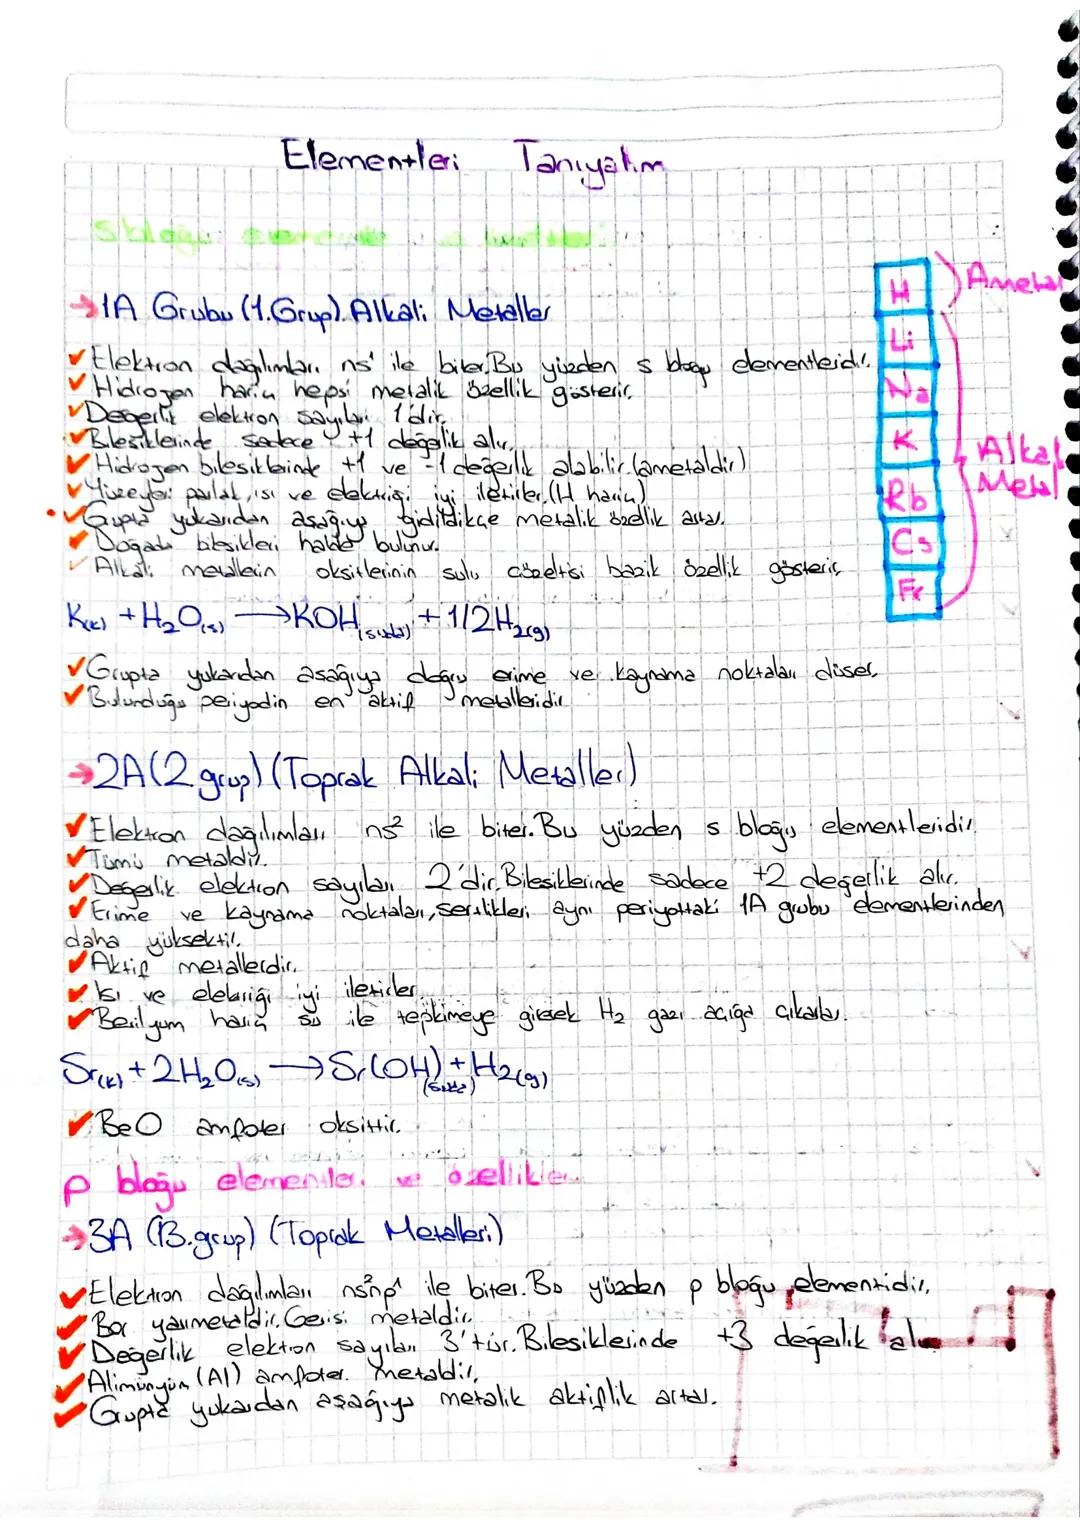 Elementleri Tanıyalım
s bloğu
→1A Grubu (1.Grup). Alkali Metaller
✓Elektron dağılımları ns¹ ile biter. Bu yüzden s bloğu elementleridir.
✓Hidrojen hariç hepsi metalik özellik gösterir.
✓Değerlik elektron sayıları 1'dir.
✓Bileşiklerinde sadece +1 değerlik alır.
✓Hidrojen bileşiklerinde +1 ve -1 değerlik alabilir. (ametaldir)
✓Yüzeyleri parlak, ısı ve elektriği iyi iletirler. (H hariç)
✓Grupta yukarıdan aşağıya gidildikçe metalik özellik artar.
✓Doğada bileşikleri halde bulunur.
✓Alkali metallerin oksitlerinin sulu çözeltisi bazik özellik gösterir.
K(k) + H₂O(s) ⟶ KOH(suda) + 1/2H₂(g)
✓Grupta yukarıdan aşağıya doğru erime ve kaynama noktaları düşer.
✓Bulunduğu periyodin en aktif metalleridir.
H
Li
Na
K
Rb
Cs
Fr
Ametal
Alkali
Metal
→2A(2.grup) (Toprak Alkali Metaller)
✓Elektron dağılımları ns² ile biter. Bu yüzden s bloğu elementleridir.
✓Tümü metaldir.
✓Değerlik elektron sayıları 2'dir. Bileşiklerinde sadece +2 değerlik alır.
✓Erime ve kaynama noktaları, sertlikleri aynı periyottaki 1A grubu elementlerinden
daha yüksektir.
✓Aktif metallerdir.
✓Isı ve elektriği iyi iletirler.
✓Berilyum hariç su ile tepkimeye girerek H₂ gazı açığa çıkarlar.
Sr(k) + 2H₂O(s) ⟶ Sr(OH)(suda) + H₂(g)
✓BeO amfoter oksittir.
p bloğu elementleri ve özellikleri
→3A (13.grup) (Toprak Metalleri)
✓Elektron dağılımları ns²np¹ ile biter. Bu yüzden p bloğu elementidir.
✓Bor yarımetaldir. Gerisi metaldir.
✓Değerlik elektron sayıları 3'tür. Bileşiklerinde +3 değerlik alır
✓Alimünyüm (Al) amfoter metaldir.
✓Grupta yukarıdan aşağıya metalik aktiflik artar.